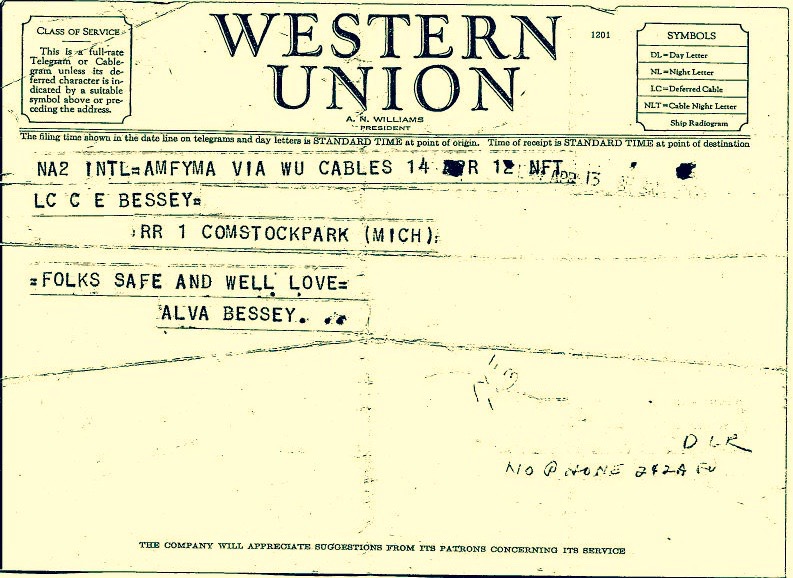 CLASS OF SERVICE
This is a full-rate
Telegram or Cable-
gram unless its de-
ferred character is in-
dicated by a suitable
symbol above or pre-
ceding the address.
WESTERN
UNION
A. N. WILLIAMS
PRESIDENT
1201
SYMBOLS
DL=Day Letter
NL=Night Letter
LC=Deferred Cable
NLT=Cable Night Letter
Ship Radiogram
The filing time shown in the date line on telegrams and day letters is STANDARD TIME at point of origin. Time of receipt is STANDARD TIME at point of destination
NA2 INTL=AMFYMA VIA WU CABLES 14 APR 12 NFT
APR 13
LC C E BESSEY=
RR 1 COMSTOCKPARK (MICH)
=FOLKS SAFE AND WELL LOVE=
ALVA BESSEY.
DLR
NO PHONE 242A
THE COMPANY WILL APPRECIATE SUGGESTIONS FROM ITS PATRONS CONCERNING ITS SERVICE